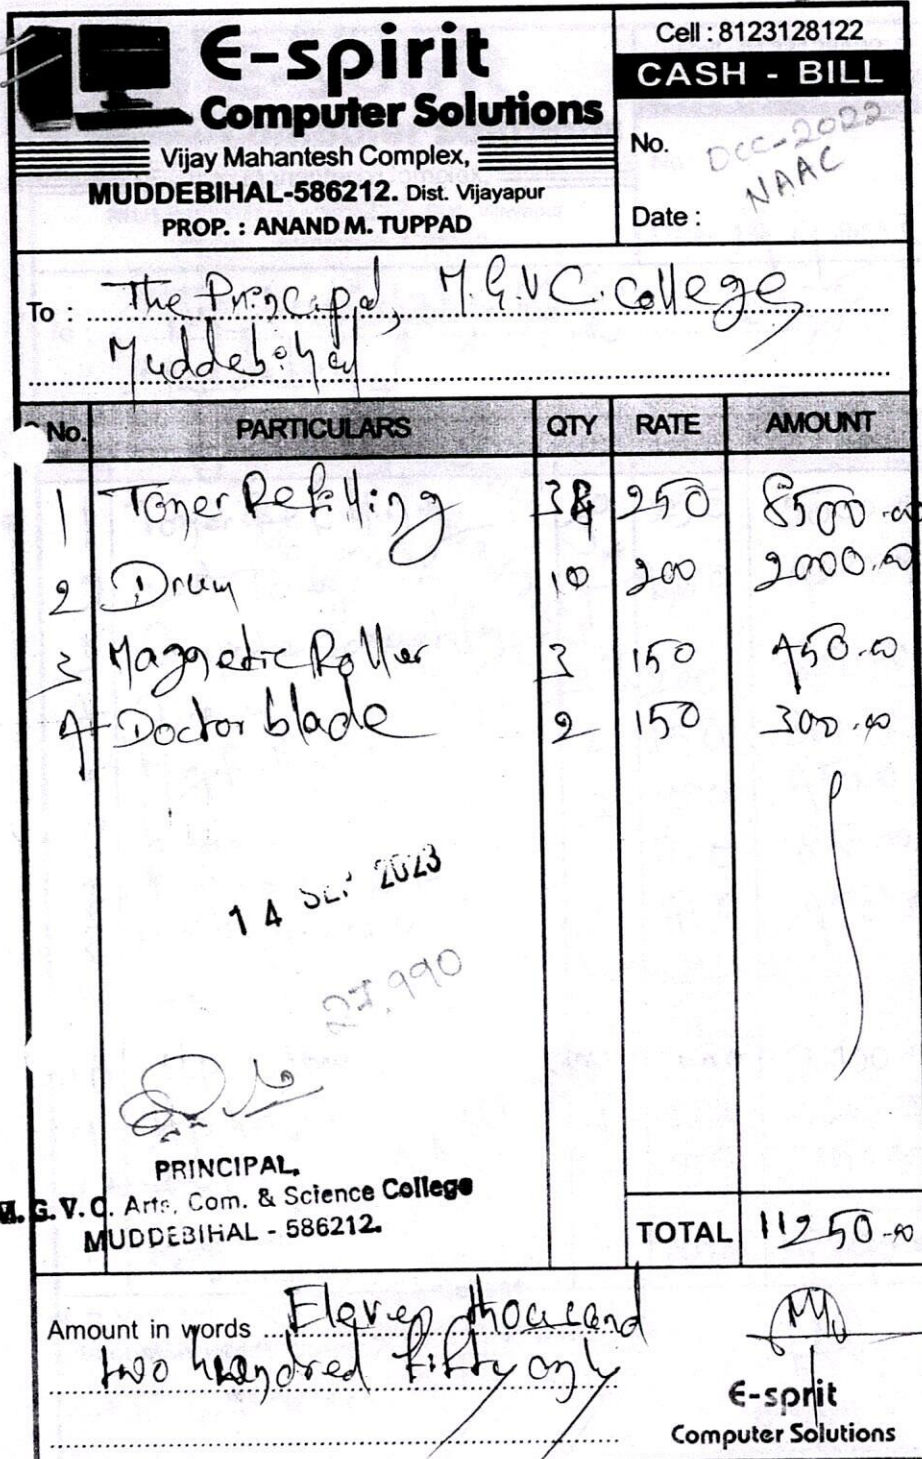 E-spirit
Computer Solutions
Vijay Mahantesh Complex,
MUDDEBIHAL-586212. Dist. Vijayapur
PROP. : ANAND M. TUPPAD
Cell : 8123128122
CASH - BILL
No. DCC-2022
NAAC
Date :
To : The Principal, M.G.V.C. College
Muddebihal
No. PARTICULARS QTY RATE AMOUNT
1 Toner Refilling 34 250 8500.00
2 Drum 10 200 2000.00
3 Magnetic Roller 3 150 450.00
4 Doctor blade 2 150 300.00
14 SEP 2023
27,990
PRINCIPAL,
M.G.V.C. Arts, Com. & Science College
MUDDEBIHAL - 586212.
TOTAL 11250.00
Amount in words Eleven thousand
two hundred fifty only
E-sprit
Computer Solutions